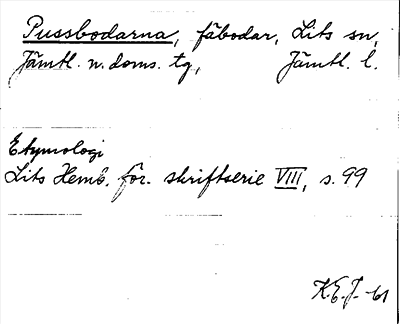 Pussbodarna, fäbodar, Lits sn,
Jämtl. n. doms. tg, Jämtl. l.
Etymologi
Lits Hemb. för. skriftserie VIII, s. 99
K.E.J. -61